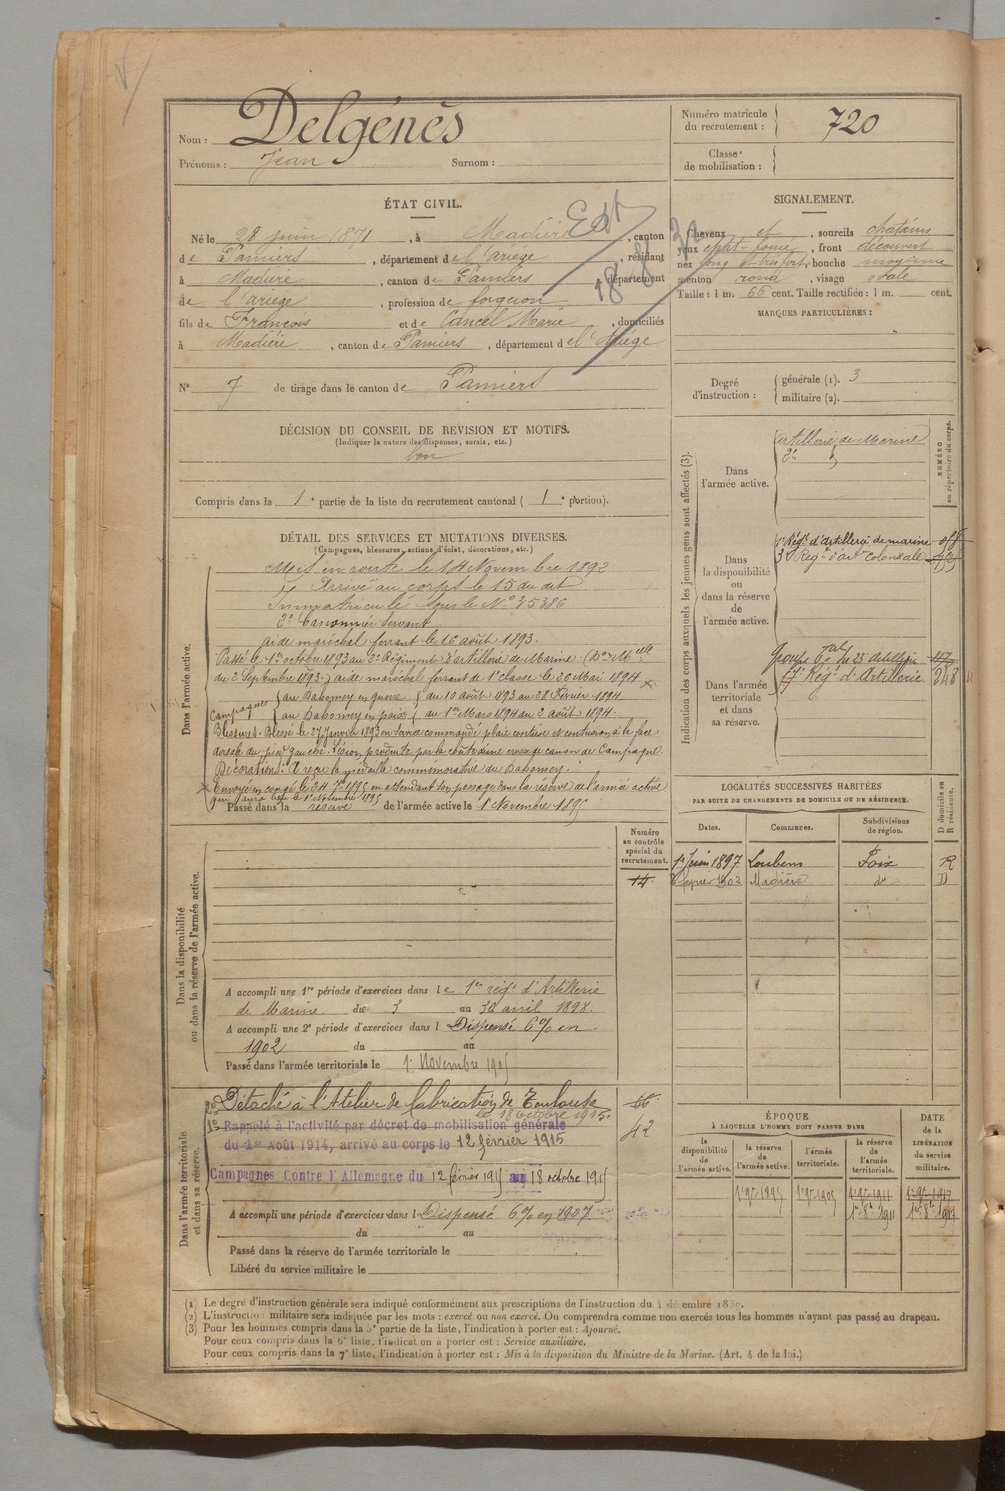 Nom : Delgénès
Prénoms : Jean Surnom :
Numéro matricule du recrutement : 720
Classe de mobilisation :
ÉTAT CIVIL.
Né le 28 juin 1871, à Madière, canton
de Pamiers, département de l'Ariège, résidant
à Madière, canton de Pamiers département
de l'Ariège, profession de forgeron
fils de François et de Cancel Marie, domiciliés
à Madière, canton de Pamiers, département de l'Ariège
N° 7 de tirage dans le canton de Pamiers
SIGNALEMENT.
Cheveux et, sourcils chatains
yeux chat-foncé, front découvert
nez long et fort, bouche moyenne
menton rond, visage ovale
Taille : 1 m. 66 cent. Taille rectifiée : 1 m. cent.
MARQUES PARTICULIÈRES :
Degré d'instruction : générale (1). 3
militaire (2).
DÉCISION DU CONSEIL DE REVISION ET MOTIFS.
(Indiquer la nature des dispenses, sursis, etc.)
bon
Compris dans la 1e partie de la liste du recrutement cantonal ( 1e portion).
DÉTAIL DES SERVICES ET MUTATIONS DIVERSES.
(Campagnes, blessures, actions d'éclat, décorations, etc.)
Dans l'armée active.
Mis en route le 14 Novembre 1892
Arrivé au corps le 15 du dit
Immatriculé sous le N° 35386
2e Canonnier servant
aide maréchal ferrant le 16 août 1893.
Passé le 1er octobre 1893 au 2e Régiment d'artillerie de Marine. (Don Melle
du 2 Septembre 1893.) aide maréchal ferrant de 1e classe le 26 Mai 1894
Campagnes au Dahomey en guerre du 10 août 1893 au 28 Février 1894
au Dahomey en paix du 1er Mars 1894 au 2 août 1894.
Blessures. Blessé le 27 Janvier 1893 en service commandé, plaie contuse et contusion à la face
dorsale du pied gauche. Lésion produite par la chûte d'une crosse de canon de Campagne.
Décorations. A reçu la médaille commémorative du Dahomey.
Envoyé en congé le 24 7bre 1895 en attendant son passage dans la réserve de l'armée active
qui aura lieu le 1er Novembre 1895
Passé dans la réserve de l'armée active le 1 Novembre 1895
Indication des corps auxquels les jeunes gens sont affectés (3).
NUMÉRO au répertoire du corps.
Dans l'armée active.
artillerie de Marine
2e
Dans la disponibilité ou dans la réserve de l'armée active.
1er Régt d'Artillerie de marine
3 Régt d'art. coloniale
Dans l'armée territoriale et dans sa réserve.
Groupe tal du 23e artillerie 117
17e Régt d'Artillerie 348
LOCALITÉS SUCCESSIVES HABITÉES
PAR SUITE DE CHANGEMENTS DE DOMICILE OU DE RÉSIDENCE.
Dates. Communes. Subdivisions de région. D domicile ou R résidence.
1er Juin 1897 Loubens Foix R
8 février 1902 Madière do D
Numéro au contrôle spécial du recrutement.
14.
Dans la disponibilité ou dans la réserve de l'armée active.
A accompli une 1re période d'exercices dans le 1er régt d'Artillerie
de Marine du 3 au 30 avril 1898.
A accompli une 2e période d'exercices dans l Dispensé 6% en
1902 du au
Passé dans l'armée territoriale le 1er Novembre 1905
Dans l'armée territoriale et dans sa réserve.
2° Détaché à l'Atelier de fabrication de Toulouse
le 18 Octobre 1915.
1° Rappelé à l'activité par décret de mobilisation générale
du 1er Août 1914, arrivé au corps le 12 février 1915
Campagnes Contre l'Allemagne du 12 février 1915 au 18 octobre 1915
A accompli une période d'exercices dans l Dispensé 6% en 1907
du au
Passé dans la réserve de l'armée territoriale le
Libéré du service militaire le
42
ÉPOQUE
À LAQUELLE L'HOMME DOIT PASSER DANS
DATE de la LIBÉRATION du service militaire.
la disponibilité de l'armée active. la réserve de l'armée active. l'armée territoriale. la réserve de l'armée territoriale.
1er 9bre 1895 1er 9bre 1905 1er 9bre 1911 1er 9bre 1917
1er 8bre 1911
(1) Le degré d'instruction générale sera indiqué conformément aux prescriptions de l'instruction du 4 décembre
(2) L'instruction militaire sera indiquée par les mots : exercé ou non exercé. On comprendra comme non exercés tous les hommes n'ayant pas passé au drapeau.
(3) Pour les hommes compris dans la 5e partie de la liste, l'indication à porter est : Ajourné.
Pour ceux compris dans la 6e liste, l'indication à porter est : Service auxiliaire.
Pour ceux compris dans la 7e liste, l'indication à porter est : Mis à la disposition du Ministre de la Marine. (Art. 4 de la loi.)